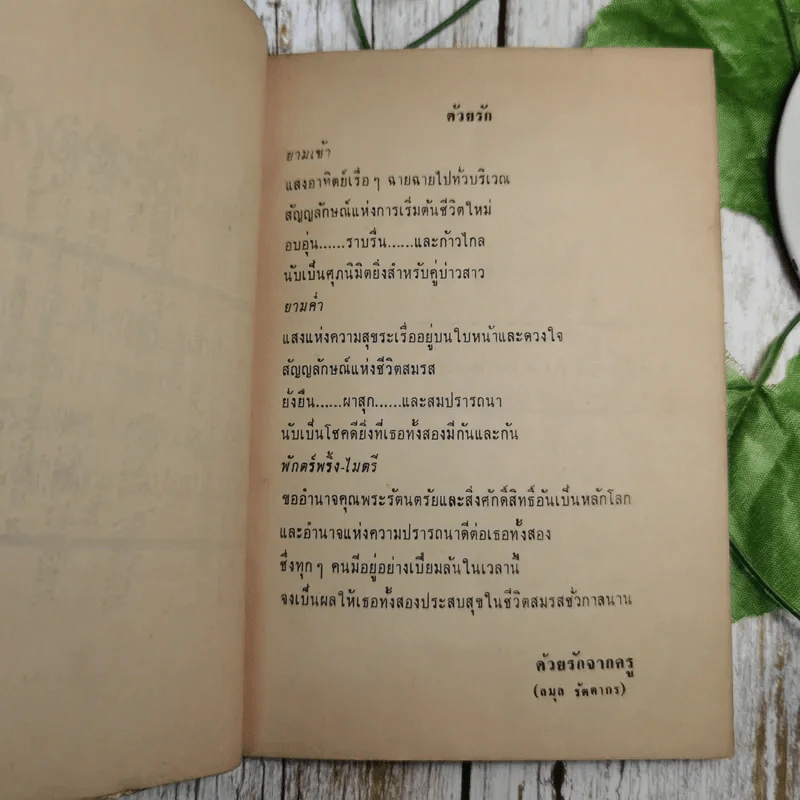 ด้วยรัก
ยามเช้า
แสงอาทิตย์เรื่อๆ ฉายฉายไปทั่วบริเวณ
สัญญลักษณ์แห่งการเริ่มต้นชีวิตใหม่
อบอุ่น......ราบรื่น......และก้าวไกล
นับเป็นศุภนิมิตยิ่งสำหรับคู่บ่าวสาว
ยามค่ำ
แสงแห่งความสุขระเรื่ออยู่บนใบหน้าและดวงใจ
สัญญลักษณ์แห่งชีวิตสมรส
ยั่งยืน......ผาสุก......และสมปรารถนา
นับเป็นโชคดียิ่งที่เธอทั้งสองมีกันและกัน
พักตร์พริ้ง-ไมตรี
ขออำนาจคุณพระรัตนตรัยและสิ่งศักดิ์สิทธิ์อันเป็นหลักโลก
และอำนาจแห่งความปรารถนาดีต่อเธอทั้งสอง
ซึ่งทุกๆ คนมีอยู่อย่างเปี่ยมล้นในเวลานี้
จงเป็นผลให้เธอทั้งสองประสบสุขในชีวิตสมรสชั่วกาลนาน
ด้วยรักจากครู
(ลมุล รัตตากร)